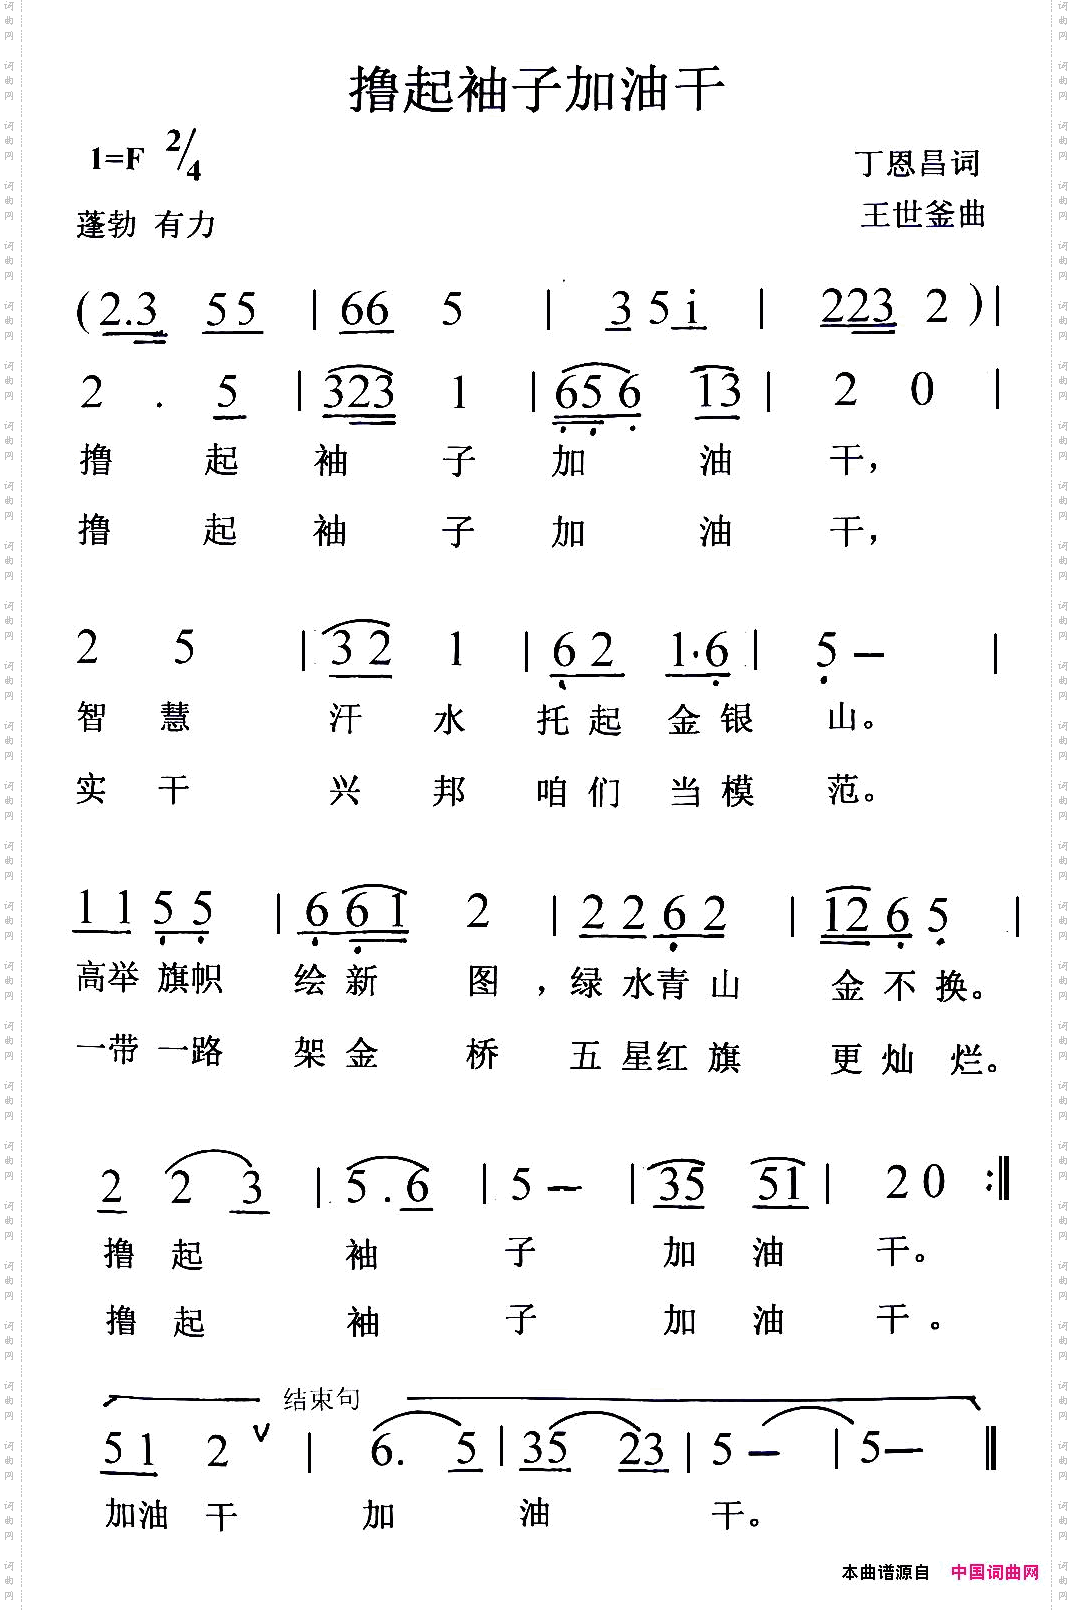 撸起袖子加油干
1=F 2/4
丁恩昌词
蓬勃 有力
王世釜曲
(2.3 55 | 66 5 | 3 5 i | 223 2 )|
2 . 5 | 323 1 | 65 6 13 | 2 0 |
撸 起 袖 子 加 油 干，
撸 起 袖 子 加 油 干，
2 5 | 3 2 1 | 6 2 1·6 | 5 – |
智 慧 汗 水 托 起 金 银 山。
实 干 兴 邦 咱 们 当 模 范。
1 1 5 5 | 6 6 1 2 | 2 2 6 2 | 12 6 5 |
高举 旗帜 绘 新 图 ，绿 水青 山 金 不 换。
一带 一路 架 金 桥 五 星红 旗 更 灿 烂。
2 2 3 | 5 . 6 | 5 – | 35 51 | 2 0 :‖
撸 起 袖 子 加 油 干。
撸 起 袖 子 加 油 干 。
结束句
5 1 2 V | 6. 5 | 35 23 | 5 – | 5 – ‖
加油 干 加 油 干。
本曲谱源自 中国词曲网